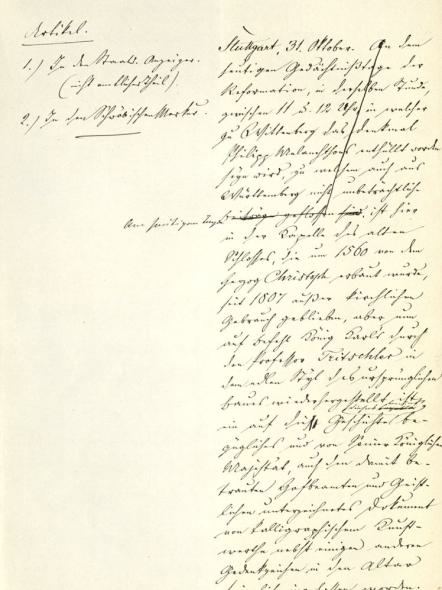 Artikel.
1.) In den Staats-Anzeiger.
(nicht amtlicher Theil).
2.) In den Schwäbischen Merkur.
Stuttgart, 31. Oktober. An dem
heutigen Gedächtnißtage der
Reformation, in derselben Stunde,
zwischen 11 u. 12 Uhr, in welcher
zu Wittenberg das Denkmal
Philipp Melanchthons enthüllt worden
seyn wird, zu welchem auch aus
Württemberg nicht unbeträchtliche
Am heutigen Tage
Beiträge geflossen sind, ist hier
in der Kapelle des alten
Schlosses, die um 1560 von dem
Herzog Christoph erbaut wurde,
seit 1807 außer kirchlichen
Gebrauch geblieben, aber nun
auf Befehl König Karls durch
den Professor Tritschler in
dem edlen Styl des ursprünglichen
Baues wiederhergestellt ist,
ein auf diese Geschichte be-
zügliches und von Seiner Königlichen
Majestät, auch den damit be-
trauten Hofbeamten und Geist-
lichen unterzeichnetes Dokument
von kalligraphischem Kunst-
werthe nebst einigen anderen
Gedenkzeichen in den Altar
worden.